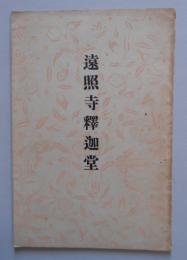 遠照寺釋迦堂